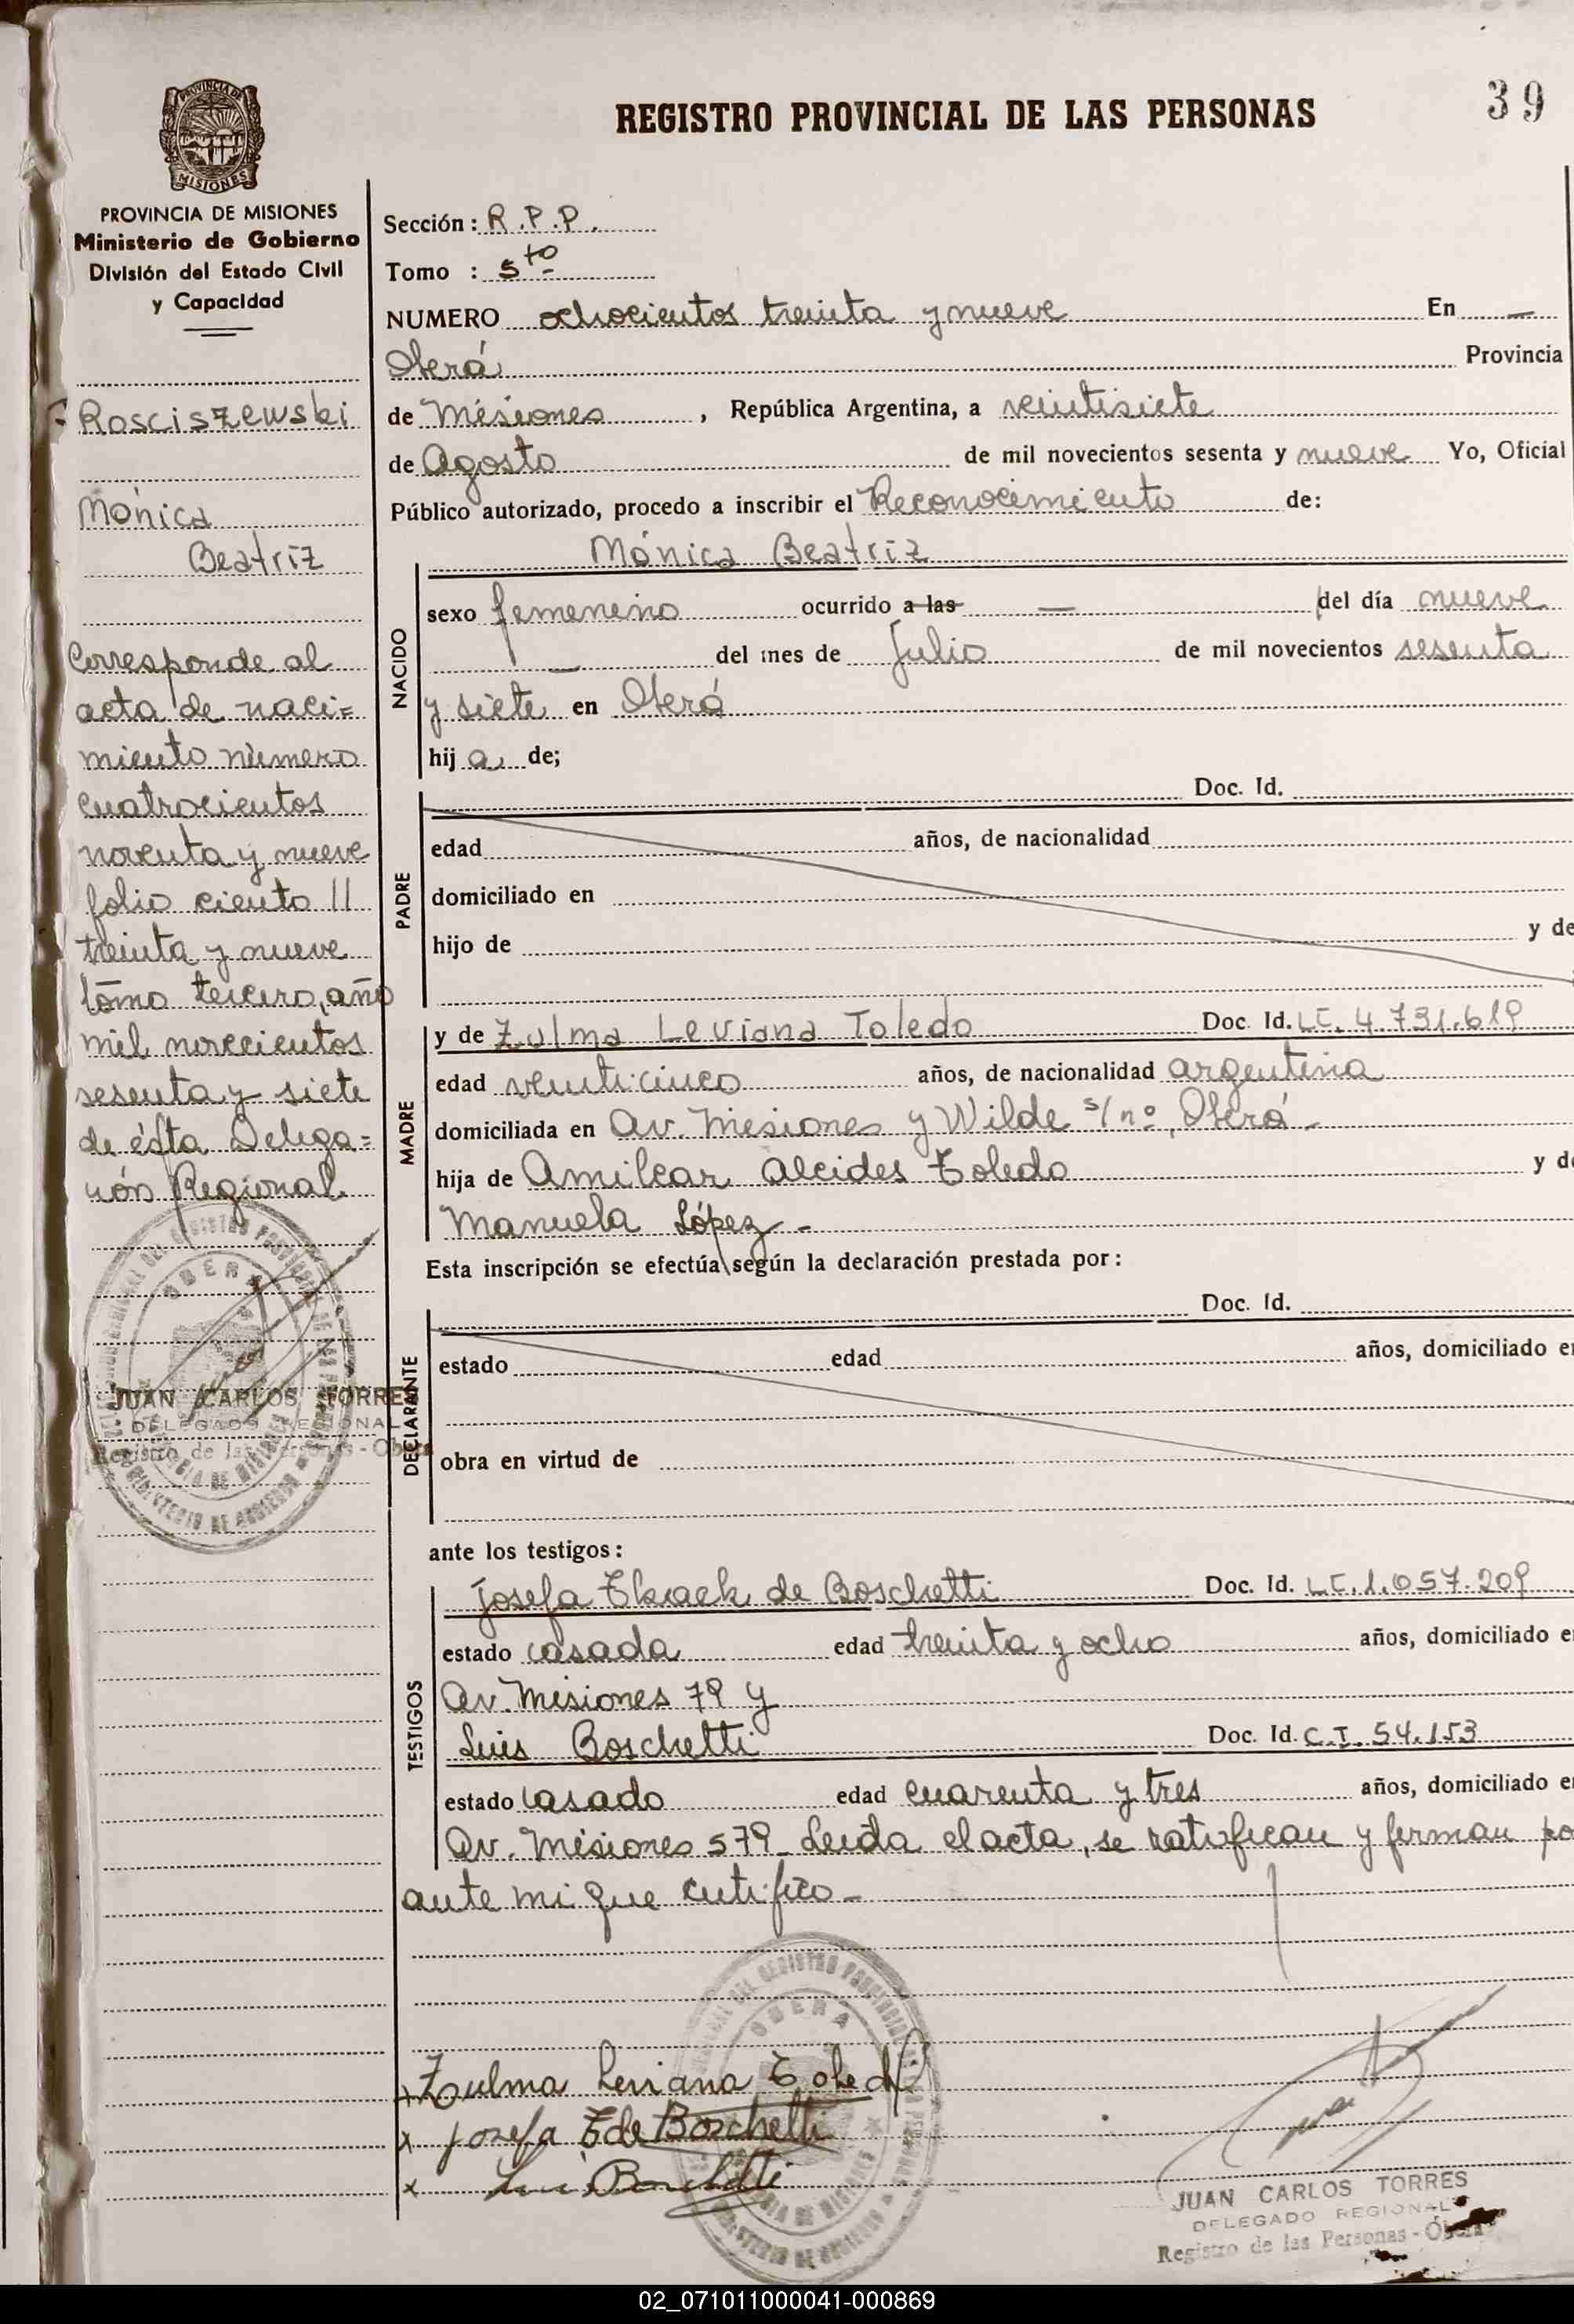 REGISTRO PROVINCIAL DE LAS PERSONAS
39
PROVINCIA DE MISIONES
PROVINCIA DE MISIONES
Ministerio de Gobierno
División del Estado Civil
y Capacidad
Rosciszewski
Mónica
Beatriz
Corresponde al
acta de naci=
miento número
cuatrocientos
noventa y nueve
folio ciento //
treinta y nueve
tomo tercero, año
mil novecientos
sesenta y siete
de ésta Delega=
ción Regional.
OBERA
JUAN CARLOS TORRES
DELEGADO REGIONAL
Registro de las Personas - Oberá
Sección : R.P.P.
Tomo : 5to
NUMERO ochocientos treinta y nueve En —
Oberá Provincia
de Misiones , República Argentina, a veintisiete
de Agosto de mil novecientos sesenta y nueve Yo, Oficial
Público autorizado, procedo a inscribir el Reconocimiento de:
NACIDO
Mónica Beatriz
sexo femenino ocurrido a las — del día nueve
— del mes de Julio de mil novecientos sesenta
y siete en Oberá
hij a de;
PADRE
Doc. Id.
edad años, de nacionalidad
domiciliado en
hijo de y de
MADRE
y de Zulma Leviana Toledo Doc. Id. L.C. 4.731.619
edad veinticinco años, de nacionalidad argentina
domiciliada en Av. Misiones y Wilde s/nº, Oberá -
hija de Amilcar Alcides Toledo y de
Manuela López -
Esta inscripción se efectúa según la declaración prestada por :
DECLARANTE
Doc. Id.
estado edad años, domiciliado en
obra en virtud de
ante los testigos :
TESTIGOS
Josefa de Boschetti Doc. Id. L.C. 1.057.209
estado casada edad treinta y ocho años, domiciliado en
Av. Misiones 79 y
Luis Boschetti Doc. Id. C.I. 54.153
estado casado edad cuarenta y tres años, domiciliado en
Av. Misiones 579 - Leída el acta, se ratifican y firman po
ante mi que certifico -
OBERA
Zulma Leviana Toledo
x Josefa de Boschetti
x Luis Boschetti
JUAN CARLOS TORRES
DELEGADO REGIONAL
Registro de las Personas - Oberá
02_071011000041-000869